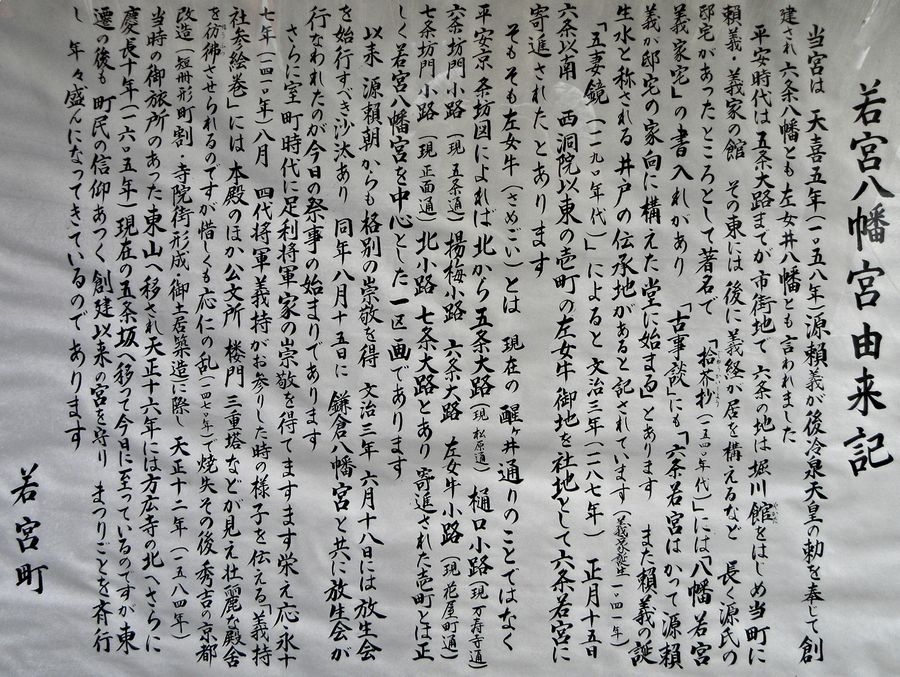 若宮八幡宮由来記
当宮は 天喜五年(一〇五八年)源頼義が後冷泉天皇の勅を奉じて創
建され六条八幡とも左女井八幡とも言われました
平安時代は五条大路までが市街地で 六条の地は堀川館をはじめ当町に
頼義・義家の館 その東には後に義経が居を構えるなど 長く源氏の
邸宅があったところとして著名で 「拾芥抄(一五四〇年代)」には「八幡若宮
義家宅」の書入れがあり 「古事談」にも「六条若宮はかつて源頼
義が邸宅の家向に構えた堂に始まる」とあります また頼義の誕
生水と称される井戸の伝承地があると記されています(義家誕生一〇四一年)
「五妻鏡(一一九〇年代)」によると文治三年(一一八七年) 正月十五日
六条以南 西洞院以東の壱町の左女牛御地を社地として六条若宮に
寄進されたとあります
そもそも左女牛(さめごい)とは 現在の醒ヶ井通りのことではなく
平安京条坊図によれば北から五条大路(現 松原通)樋口小路(現 万寿寺通)
六条坊門小路(現 五条通)楊梅小路 六条大路 左女牛小路(現 花屋町通)
七条坊門小路(現 正面通)北小路 七条大路とあり 寄進された壱町とは正
しく若宮八幡宮を中心とした一区画であります
以来 源頼朝からも格別の崇敬を得 文治三年 六月十八日には放生会
を始行すべき沙汰あり 同年八月十五日に 鎌倉八幡宮と共に放生会が
行なわれたのが今日の祭事の始まりであります
さらに室町時代に足利将軍家の崇敬を得てますます栄え応永十
七年(一四一〇年)八月 四代将軍義持がお参りした時の様子を伝える「義持
社参絵巻」には 本殿のほか公文所 楼門 三重塔などが見え壮麗な殿舎
を彷彿させられるのですが惜しくも応仁の乱(一四七〇年)で焼失その後秀吉の京都
改造(短冊形町割・寺院街形成・御土居築造)に際し 天正十二年(一五八四年)
当時の御旅所のあった東山へ移され天正十六年には方広寺の北へさらに
慶長十年(一六〇五年)現在の五条坂へ移って今日に至っているのですが東
遷の後も町民の信仰あつく 創建以来の宮を守り まつりごとを斉行
し 年々盛んになってきているのであります
若宮町